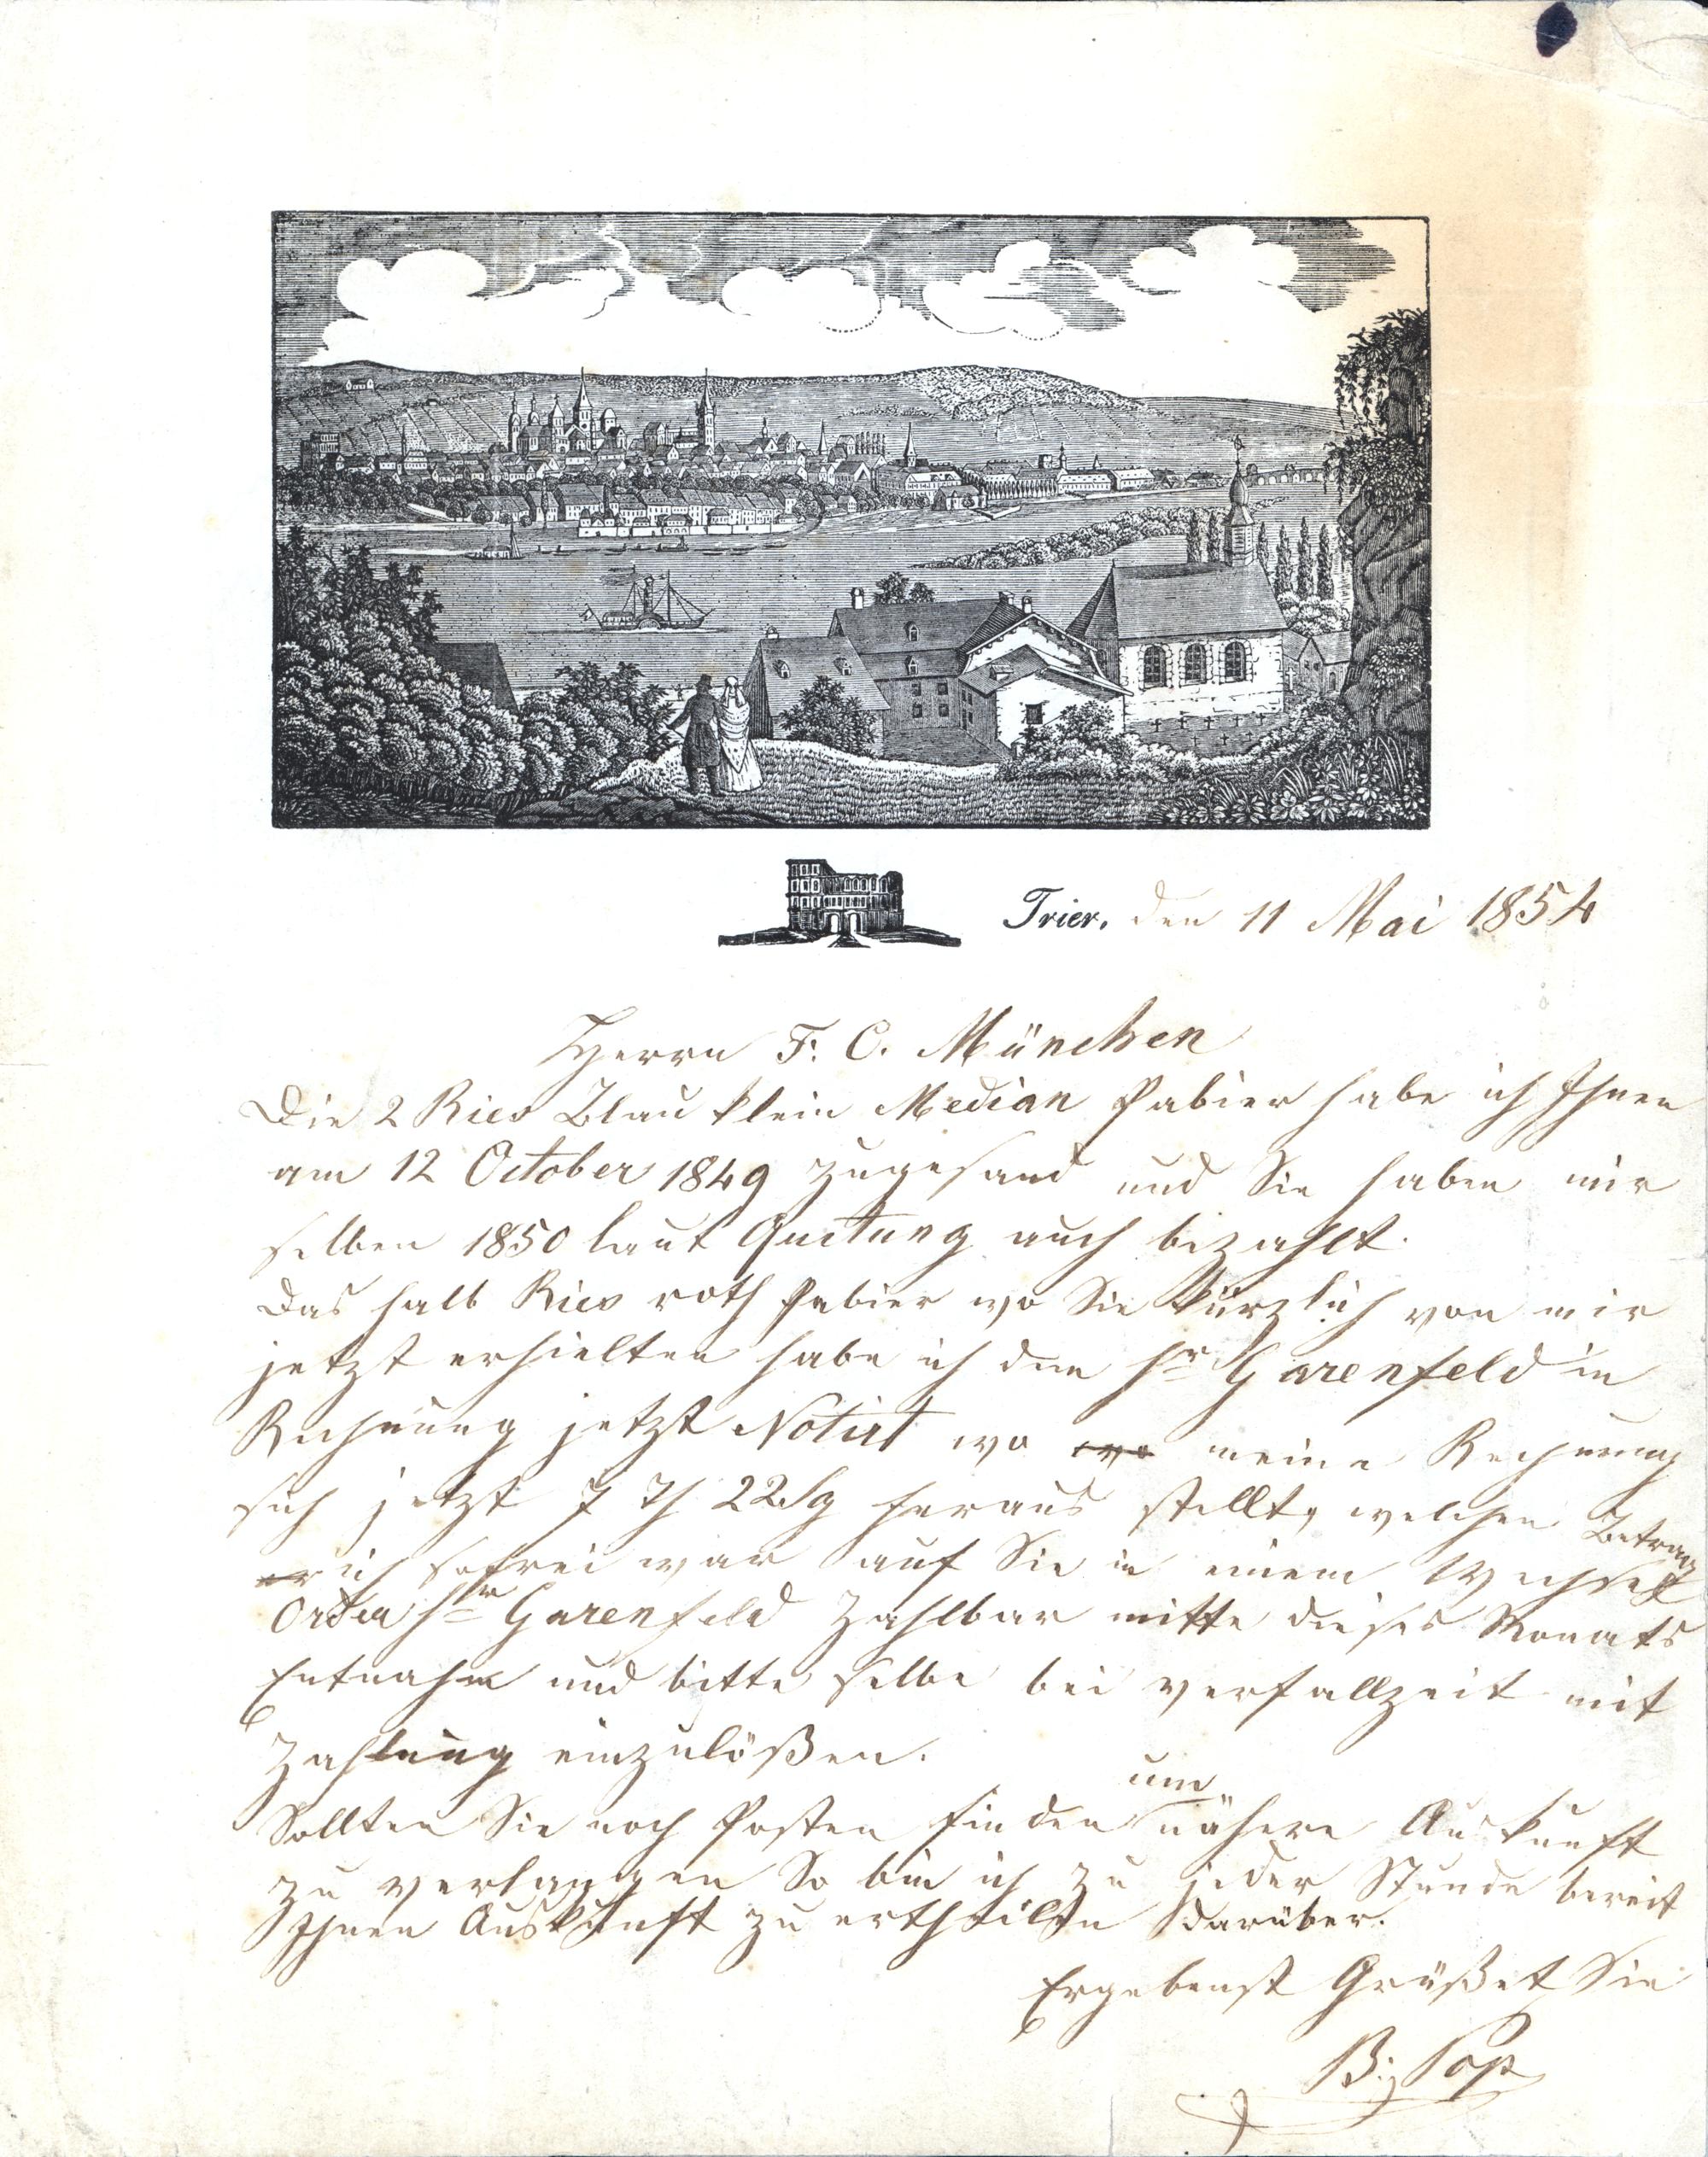 Trier, den 11 Mai 1854
Herrn F. C. München
Die 2 Ries Blau klein Median Pabier habe ich Ihnen
am 12 October 1849 zugesand und Sie haben mir
selben 1850 laut Quitung auch bezahlt.
Das halb Ries roth Pabier wo Sie kürzlich von mir
jetzt erhielten habe ich den Hr Garenfeld in
Rechnung jetzt Notirt wo meine Rechnung
sich jetzt 7 Th 22 Sg heraus stellt, welchen Betrag
ich sofrei war auf Sie in einem Wechsel
Order Hr Garenfeld Zahlbar mitte dieses Monats
Entnahm und bitte selbe bei verfallzeit mit
Zahlung einzulößen.
Sollten Sie noch Posten finden um nähere Auskunft
zu verlangen So bin ich zu jeder Stunde bereit
Ihnen Auskunft zu ertheilen darüber.
Ergebenst Grüßet Sie
B. Pop